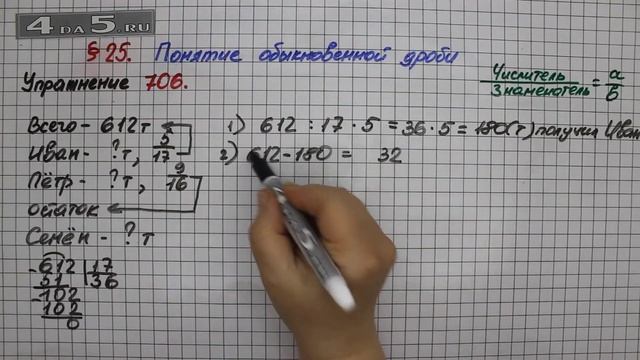 4DA5.RU
§25. Понятие обыкновенной дроби
Упражнение 706.
Числитель / Знаменатель = a/б
Всего - 612 т
Иван - ? т, 5/17
Пётр - ? т, 9/16
остаток
Семён - ? т
1) 612 : 17 · 5 = 36 · 5 = 180 (т) получил Иван
2) 612 - 180 = 32
- 612 | 17
51 | 36
- 102
102
0